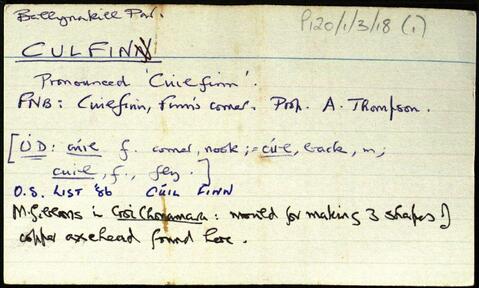 Ballynakill Par.
P120/1/3/18 (1)
CULFINN
Pronounced 'Cúilfinn'.
FNB: Cuilfinn, Finn's corner. Prop. A. Thompson.
[UD: cúil f. corner, nook; = cúl, back, m;
cuil, f., fly.]
O.S. LIST '86 CÚIL FINN
M. Gibbons in Croí Chonamara: mould for making 3 shapes of
copper axehead found here.